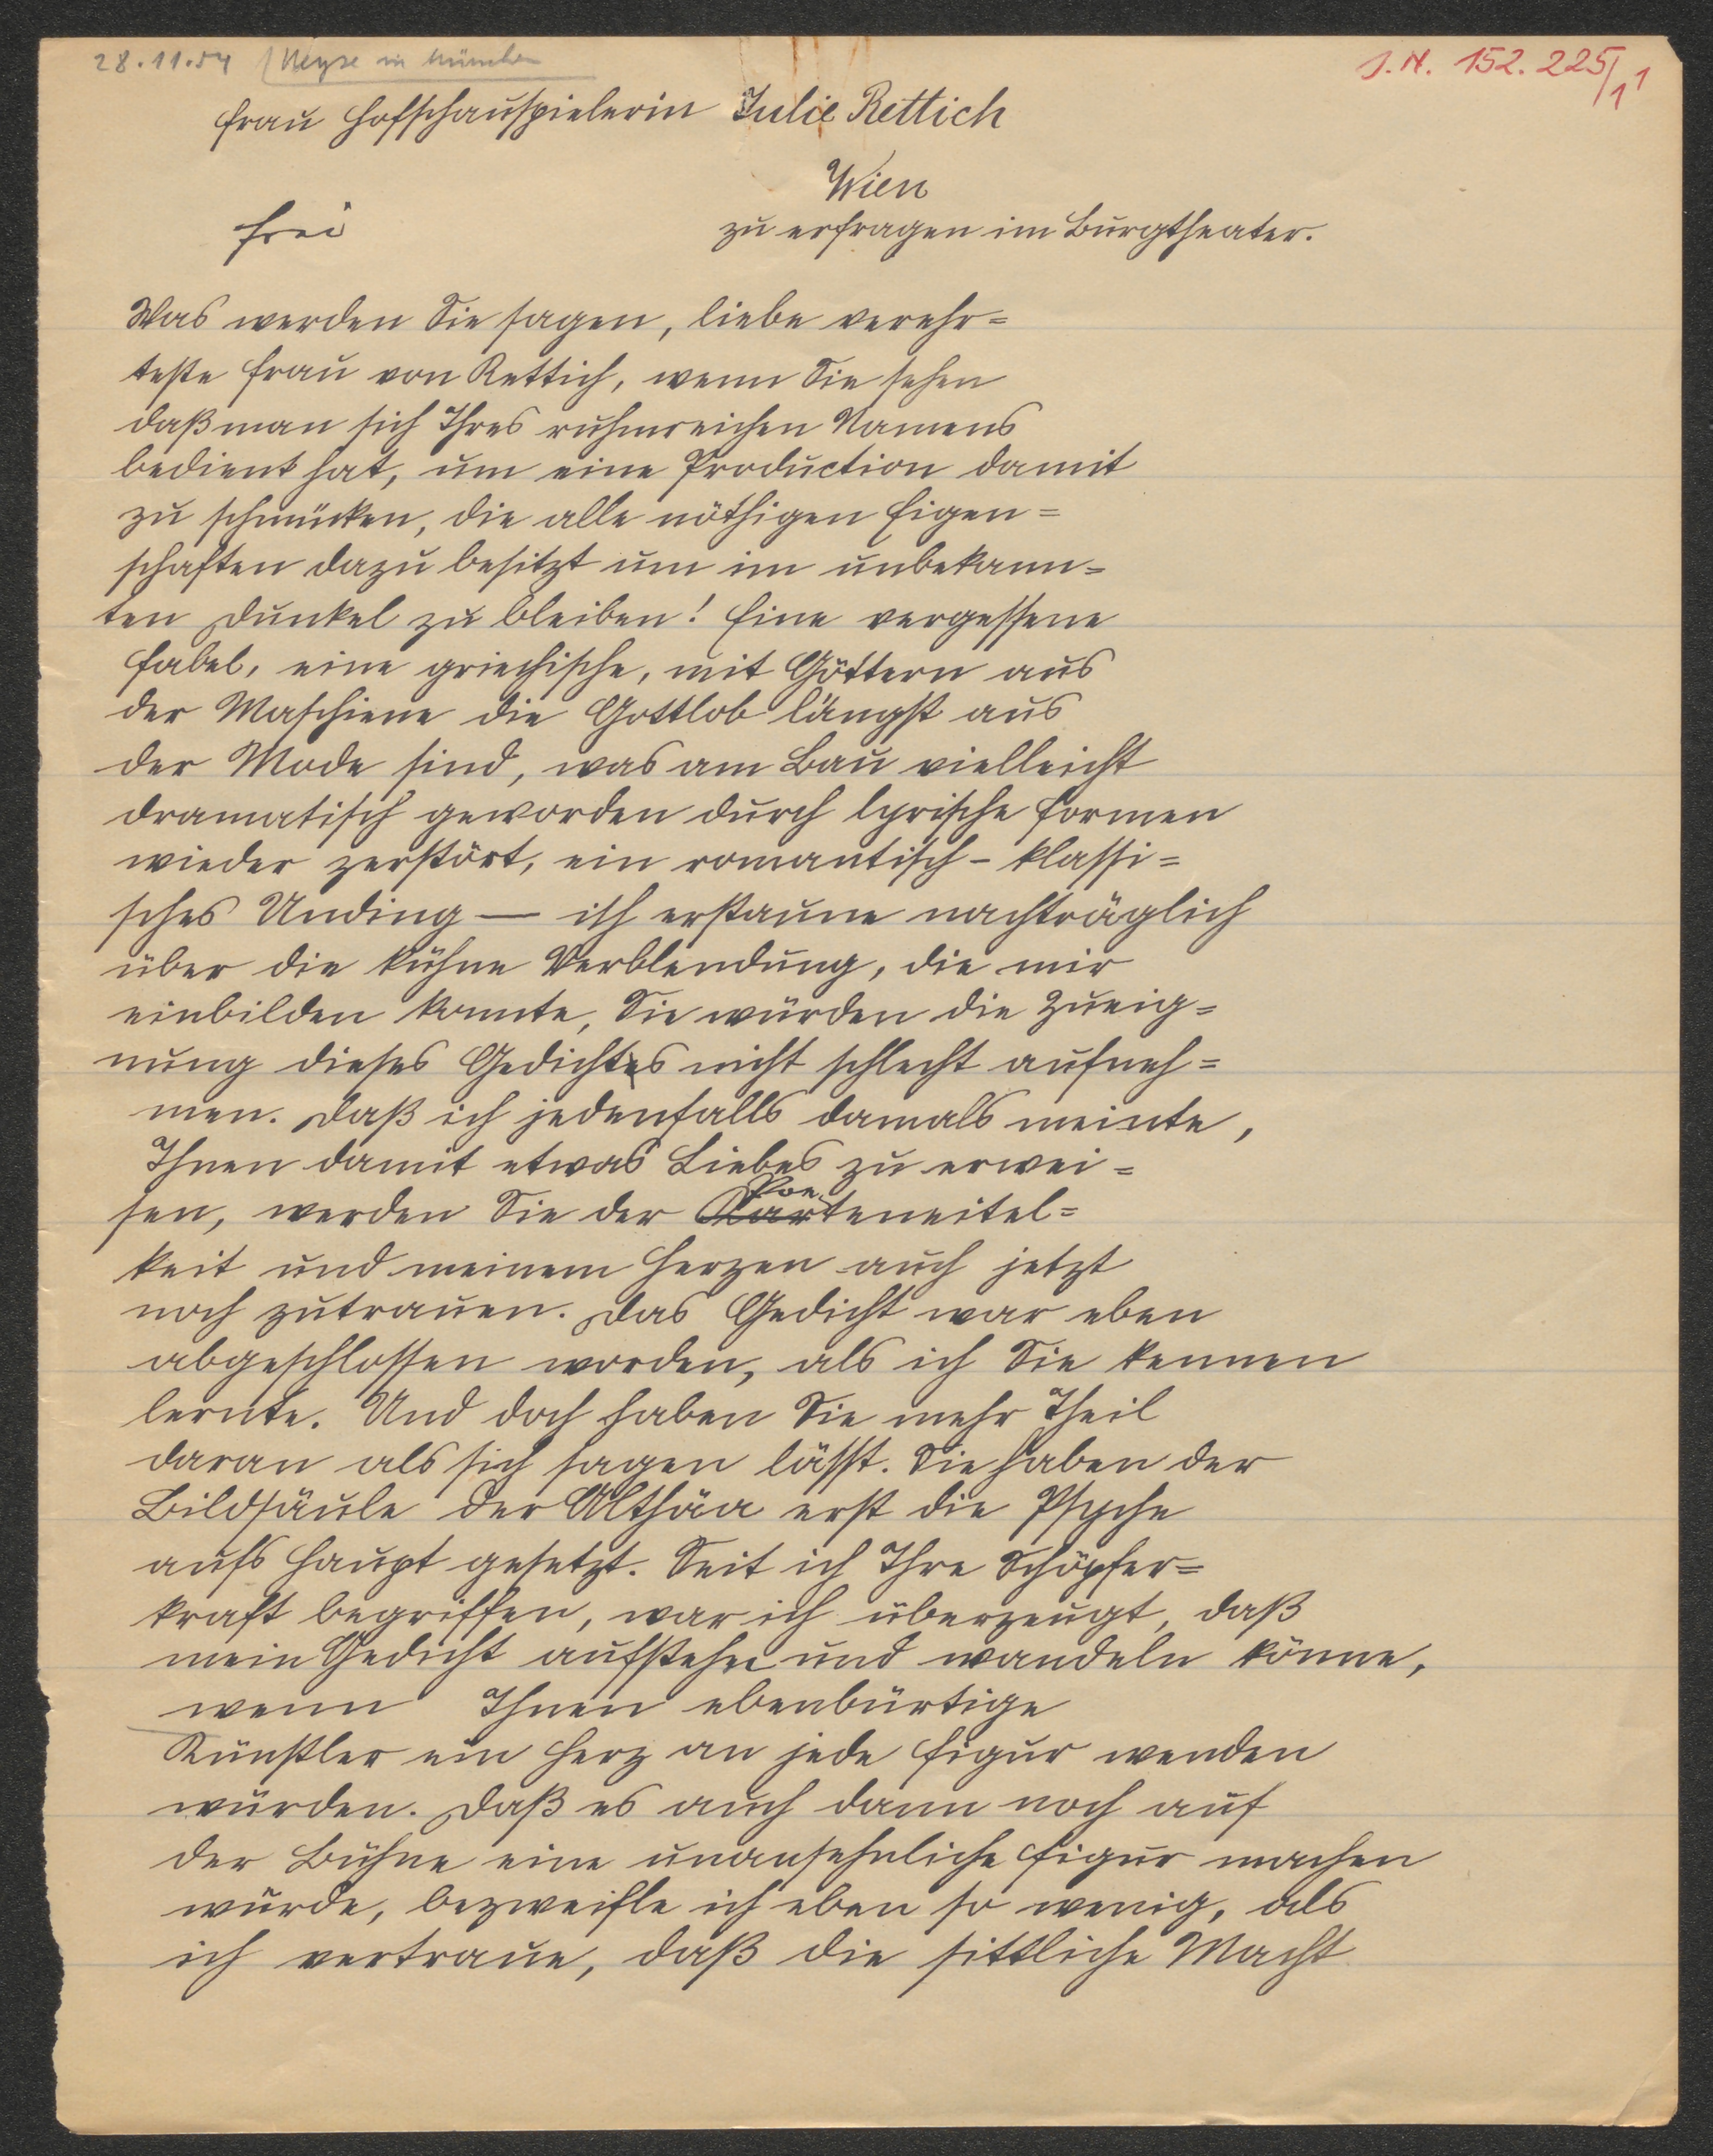 28.11.54 Heyse in München
J.N. 152.225/1 1
Frau Hofschauspielerin Julie Rettich
Wien
frei zu erfragen im Burgtheater.
Was werden Sie sagen, liebe verehr=
teste Frau von Rettich, wenn Sie sehen
daß man sich Ihres ruhmreichen Namens
bedient hat, um eine Production damit
zu schmücken, die alle nöthigen Eigen=
schaften dazu besitzt um im unbekann=
ten Dunkel zu bleiben! Eine vergessene
Fabel, eine griechische, mit Göttern aus
der Maschiene die Gottlob längst aus
der Mode sind, was am Bau vielleicht
dramatisch geworden durch lyrische Formen
wieder zerstört, ein romantisch-klassi=
sches Unding — ich erstaune nachträglich
über die kühne Verblendung, die mir
einbilden konnte, Sie würden die Zueig=
nung dieses Gedichtes nicht schlecht aufneh=
men. Daß ich jedenfalls damals meinte,
Ihnen damit etwas Liebes zu erwei=
sen, werden Sie der Poeteneitel=
keit und meinem Herzen auch jetzt
noch zutrauen. Das Gedicht war eben
abgeschlossen worden, als ich Sie kennen
lernte. Und doch haben Sie mehr Theil
daran als sich sagen lässt. Sie haben der
Bildsäule der Althäa erst die Psyche
aufs Haupt gesetzt. Seit ich Ihre Schöpfer=
kraft begriffen, war ich überzeugt, daß
mein Gedicht aufstehn und wandeln könne,
wenn Ihnen ebenbürtige
Künstler ein Herz an jede Figur wenden
würden. Daß es auch dann noch auf
der Bühne eine unansehnliche Figur machen
würde, bezweifle ich eben so wenig, als
ich vertraue, daß die sittliche Macht